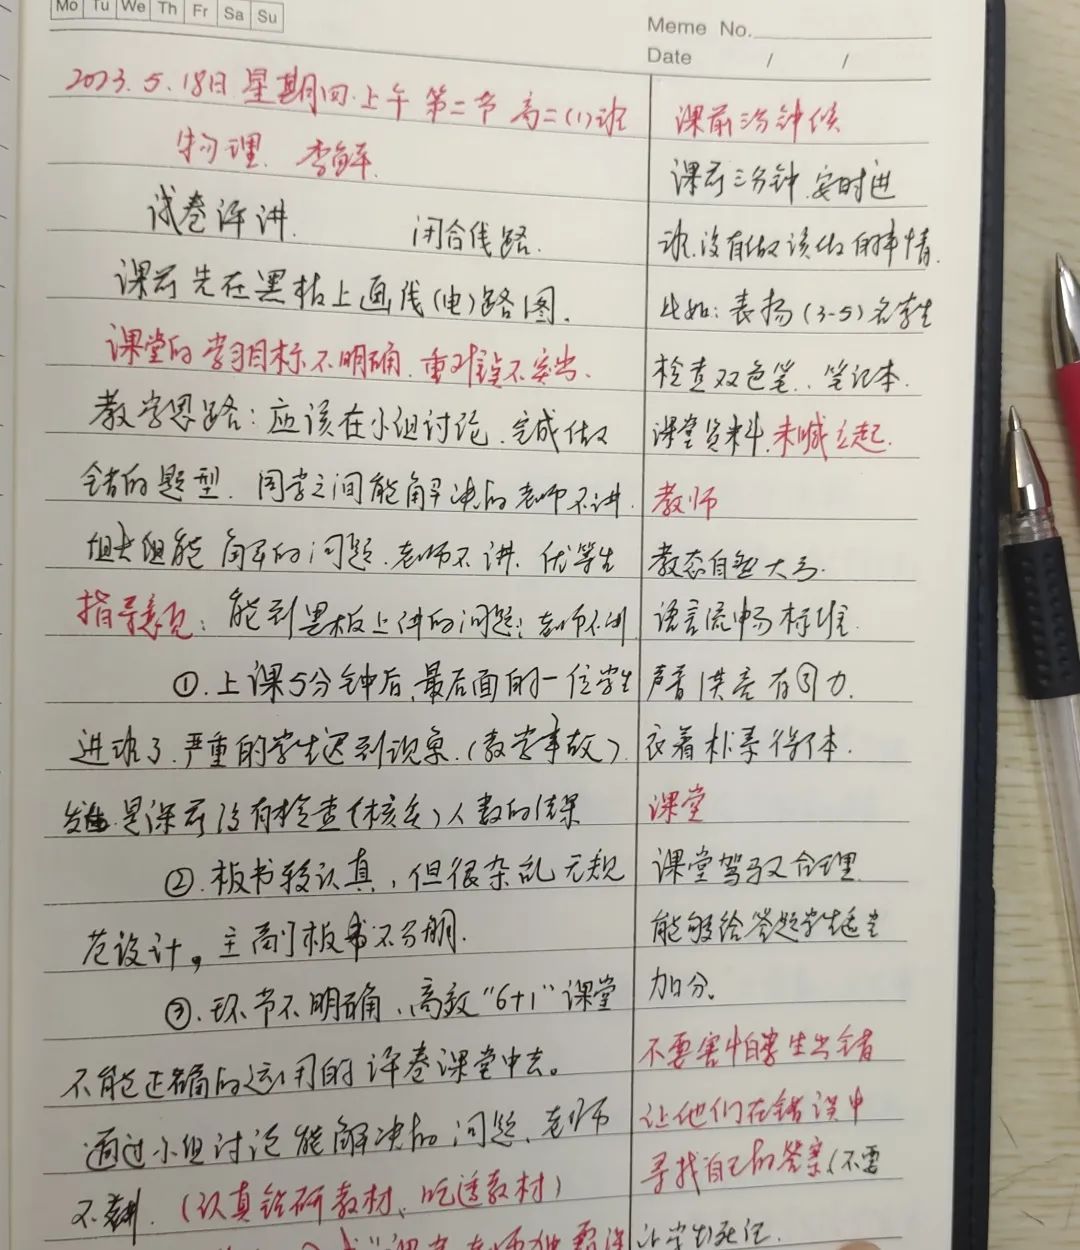 Mo Tu We Th Fr Sa Su
Meme No.
Date / /
2023.5.18日 星期四 上午 第二节 高二(1)班
物理 李解
试卷评讲. 闭合线路.
课前先在黑板上画线(电)路图.
课堂的学习目标不明确.重难不突出.
教学思路:应该在小组讨论.完成做
错的题型.同学之间能解决的老师不讲.
组能解的问题.老师不讲.优等生
指导意见:能到黑板上讲的问题;老师不讲
①.上课5分钟后,最后面的一位学生
进班了.严重的学生迟到现象.(教学事故)
是课前没有检查(核实)人数的结果
②.板书较认真,但很杂乱无规
范设计。主副板书不分明.
③.环节不明确、高效“6+1”课堂
不能正确的运用的评卷课堂中去。
通过小组讨论能解决的问题、老师
不讲.(认真钻研教材、吃透教材)
课前三分钟候
课前三分钟.按时进
班.没有做该做的事情.
比如:表扬(3-5)名学生
检查双色笔、笔记本.
课堂资料.未喊立起.
教师
教态自然大方.
语言流畅标准.
声音洪亮有力.
衣着朴素得体.
课堂
课堂驾驭合理.
能够给答题学生适当
加分。
不要害怕学生出错
让他们在错误中
寻找自己的答案(不要
让学生死记.